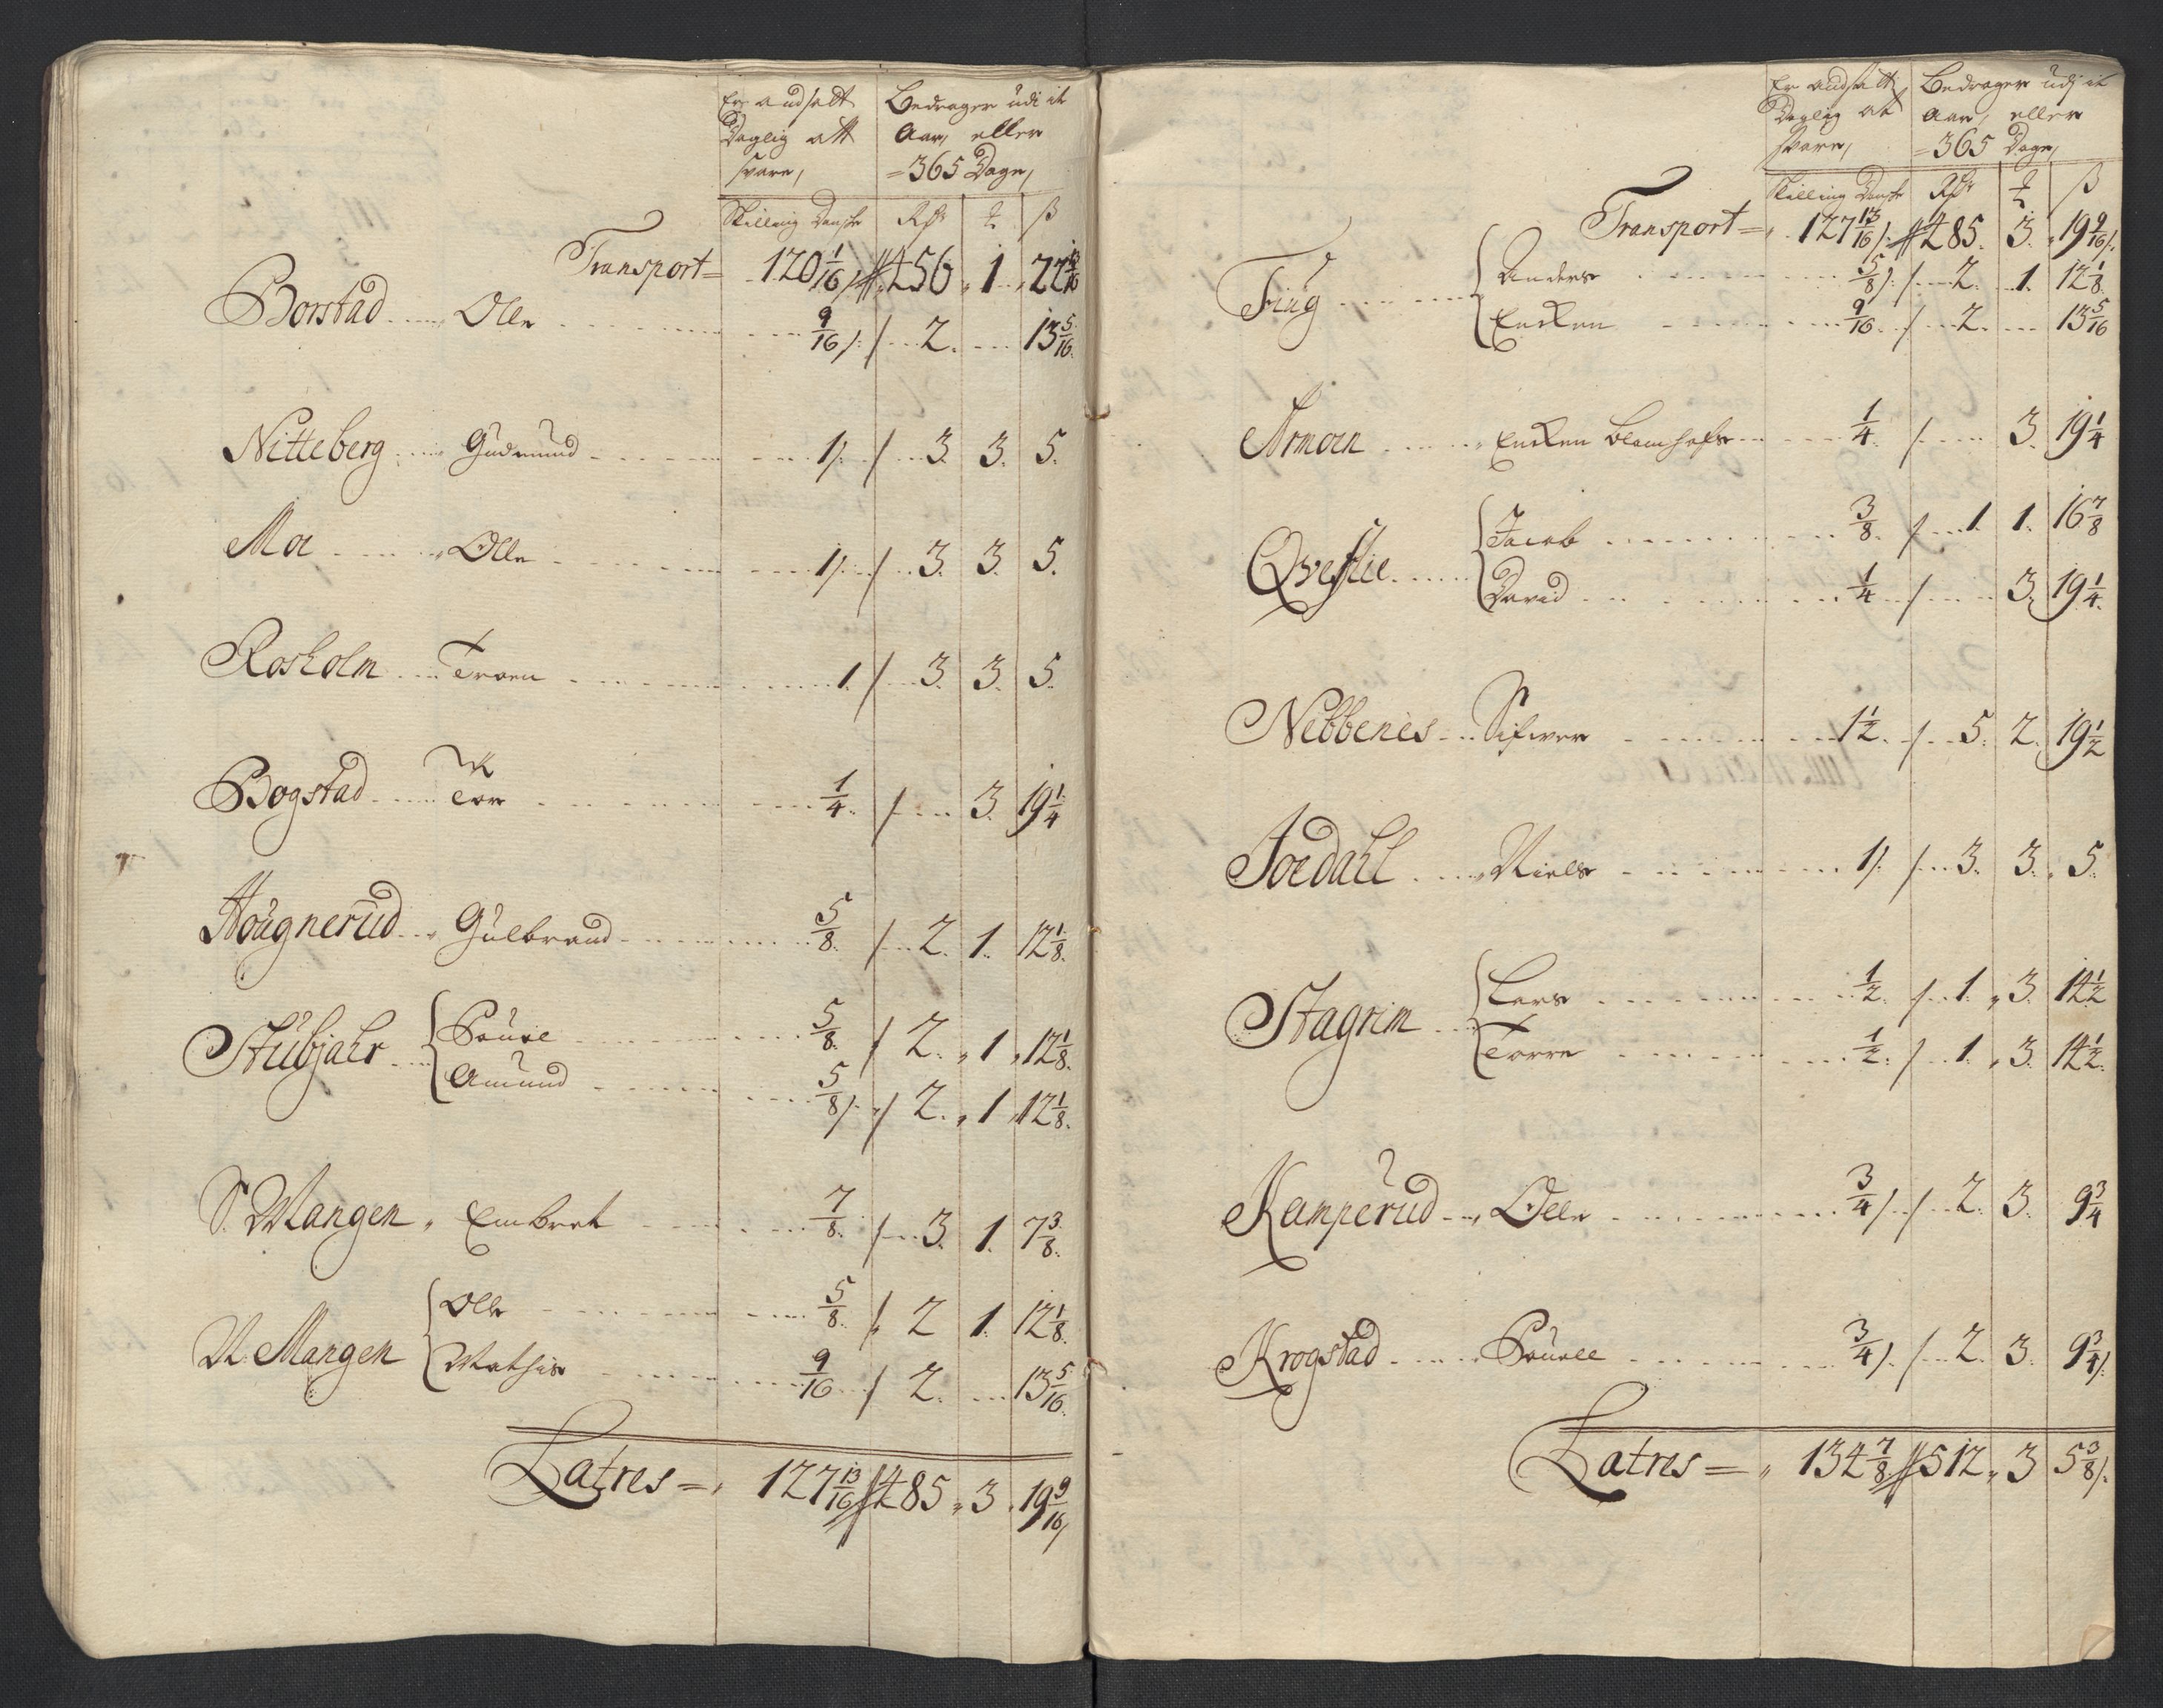 Er andsatt Daglig att svare,
Bedrager udi it Aar, eller =365 Dage,
Skilling Danske Rdr ß
Transport= 120 1/16 456 1 22 13/16
Borstad Olle 9/16 2 13 5/16
Nitteberg Gudmund 1 3 3 5
Moe Olle 1 3 3 5
Rosholm Troen 1 3 3 5
Bogstad Tor 1/4 3 19 1/4
Hougnerud Gulbrand 5/8 2 1 12 1/8
Stubjahr Siuel 5/8 2 1 12 1/8
Amund 5/8 2 1 12 1/8
S. Mangen Embret 7/8 3 1 7 3/8
N. Mangen Olle 5/8 2 1 12 1/8
Mathis 9/16 2 13 5/16
Latres= 127 13/16 485 3 19 9/16
Er andsatt Daglig at svare,
Bedrager udj it Aar, eller =365 Dage,
Skilling Danske Rdr ß
Transport= 127 13/16 485 3 19 9/16
Ting Anders 5/8 2 1 12 1/8
Encken 9/16 2 13 5/16
Armoen Encken 1/4 3 19 1/4
Qveslie Jacob 3/8 1 1 16 7/8
David 1/4 3 19 1/4
Nebbenes Sifver 1 1/2 5 2 19 1/2
Joedahl Niels 1 3 3 5
Hagrim Lars 1/2 1 3 14 1/2
Torre 1/2 1 3 14 1/2
Kamperud Olle 3/4 2 3 9 3/4
Krogstad Siuell 3/4 2 3 9 3/4
Latres= 134 7/8 512 3 5 3/8